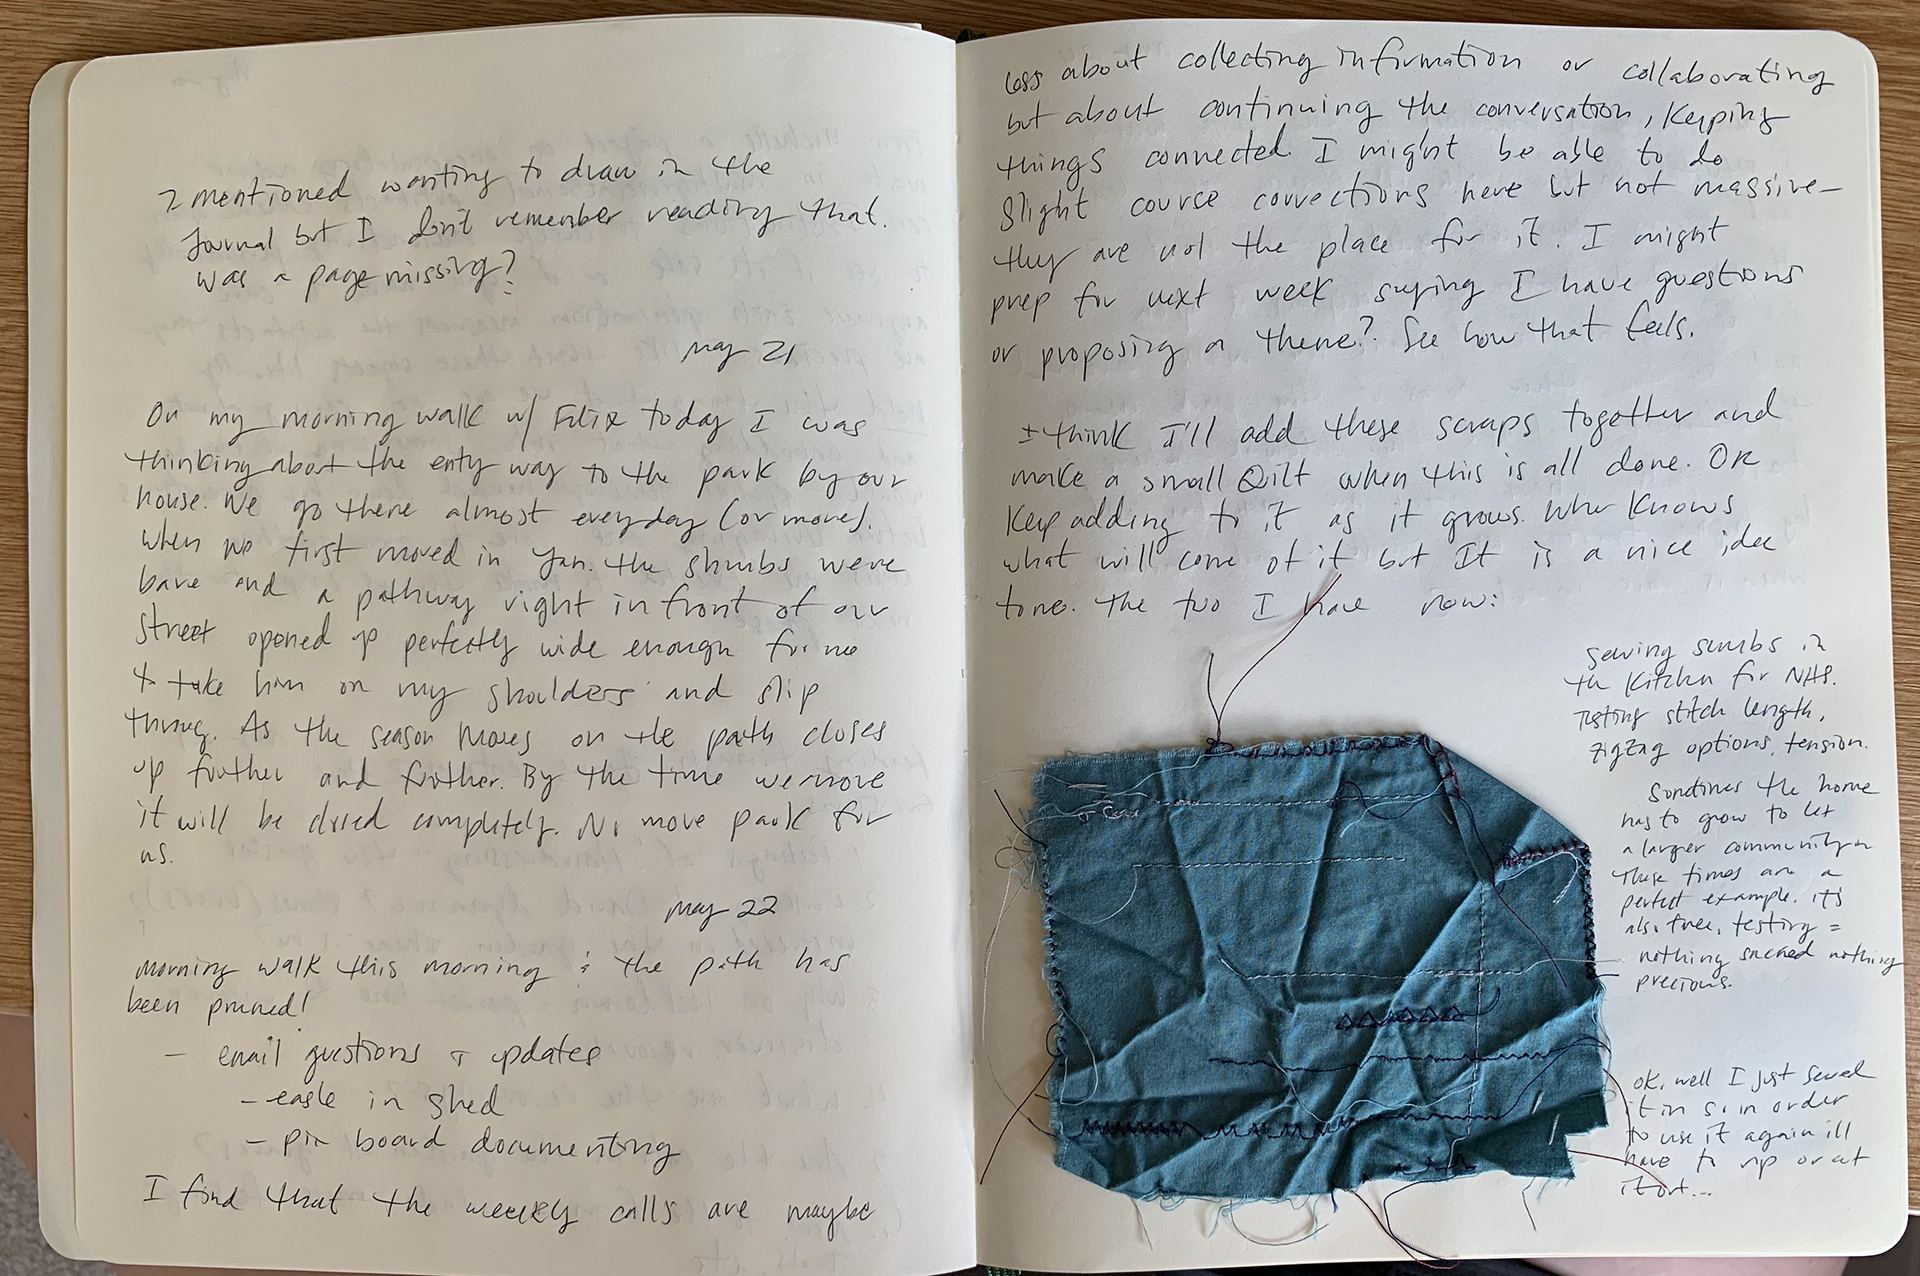 I mentioned wanting to draw in the
Journal but I don't remember reading that.
was a page missing?
May 21
On my morning walk w/ Felix today I was
thinking about the enty way to the park by our
house. We go there almost everyday (or more).
when we first moved in Jan. the shrubs were
bare and a pathway right in front of our
street opened up perfectly wide enough for me
to take him on my shoulders and slip
throug. As the season moves on the path closes
up further and further. By the time we move
it will be closed completely. No more park for
us.
May 22
morning walk this morning & the path has
been pruned!
- email questions & updates
- easle in shed
- pin board documenting
I find that the weekly calls are maybe
less about collecting information or collaborating
but about continuing the conversation, keeping
things connected. I might be able to do
slight course corrections here but not massive-
they are not the place for it. I might
prep for next week saying I have questions
or proposing a theme? See how that feels.
I think I'll add these scraps together and
make a small Quilt when this is all done. OR
Keep adding to it as it grows. Who knows
what will come of it but It is a nice idea
to me. The two I have now:
Sewing scrubs in
the Kitchen for NHS.
Testing stitch length,
zigzag options, tension.
Sometimes the home
has to grow to let
a larger community in
These times are a
perfect example. it's
also free, testing =
nothing sacred nothing
precious.
ok, well I just sewed
it in so in order
to use it again ill
have to rip or cut
it out...